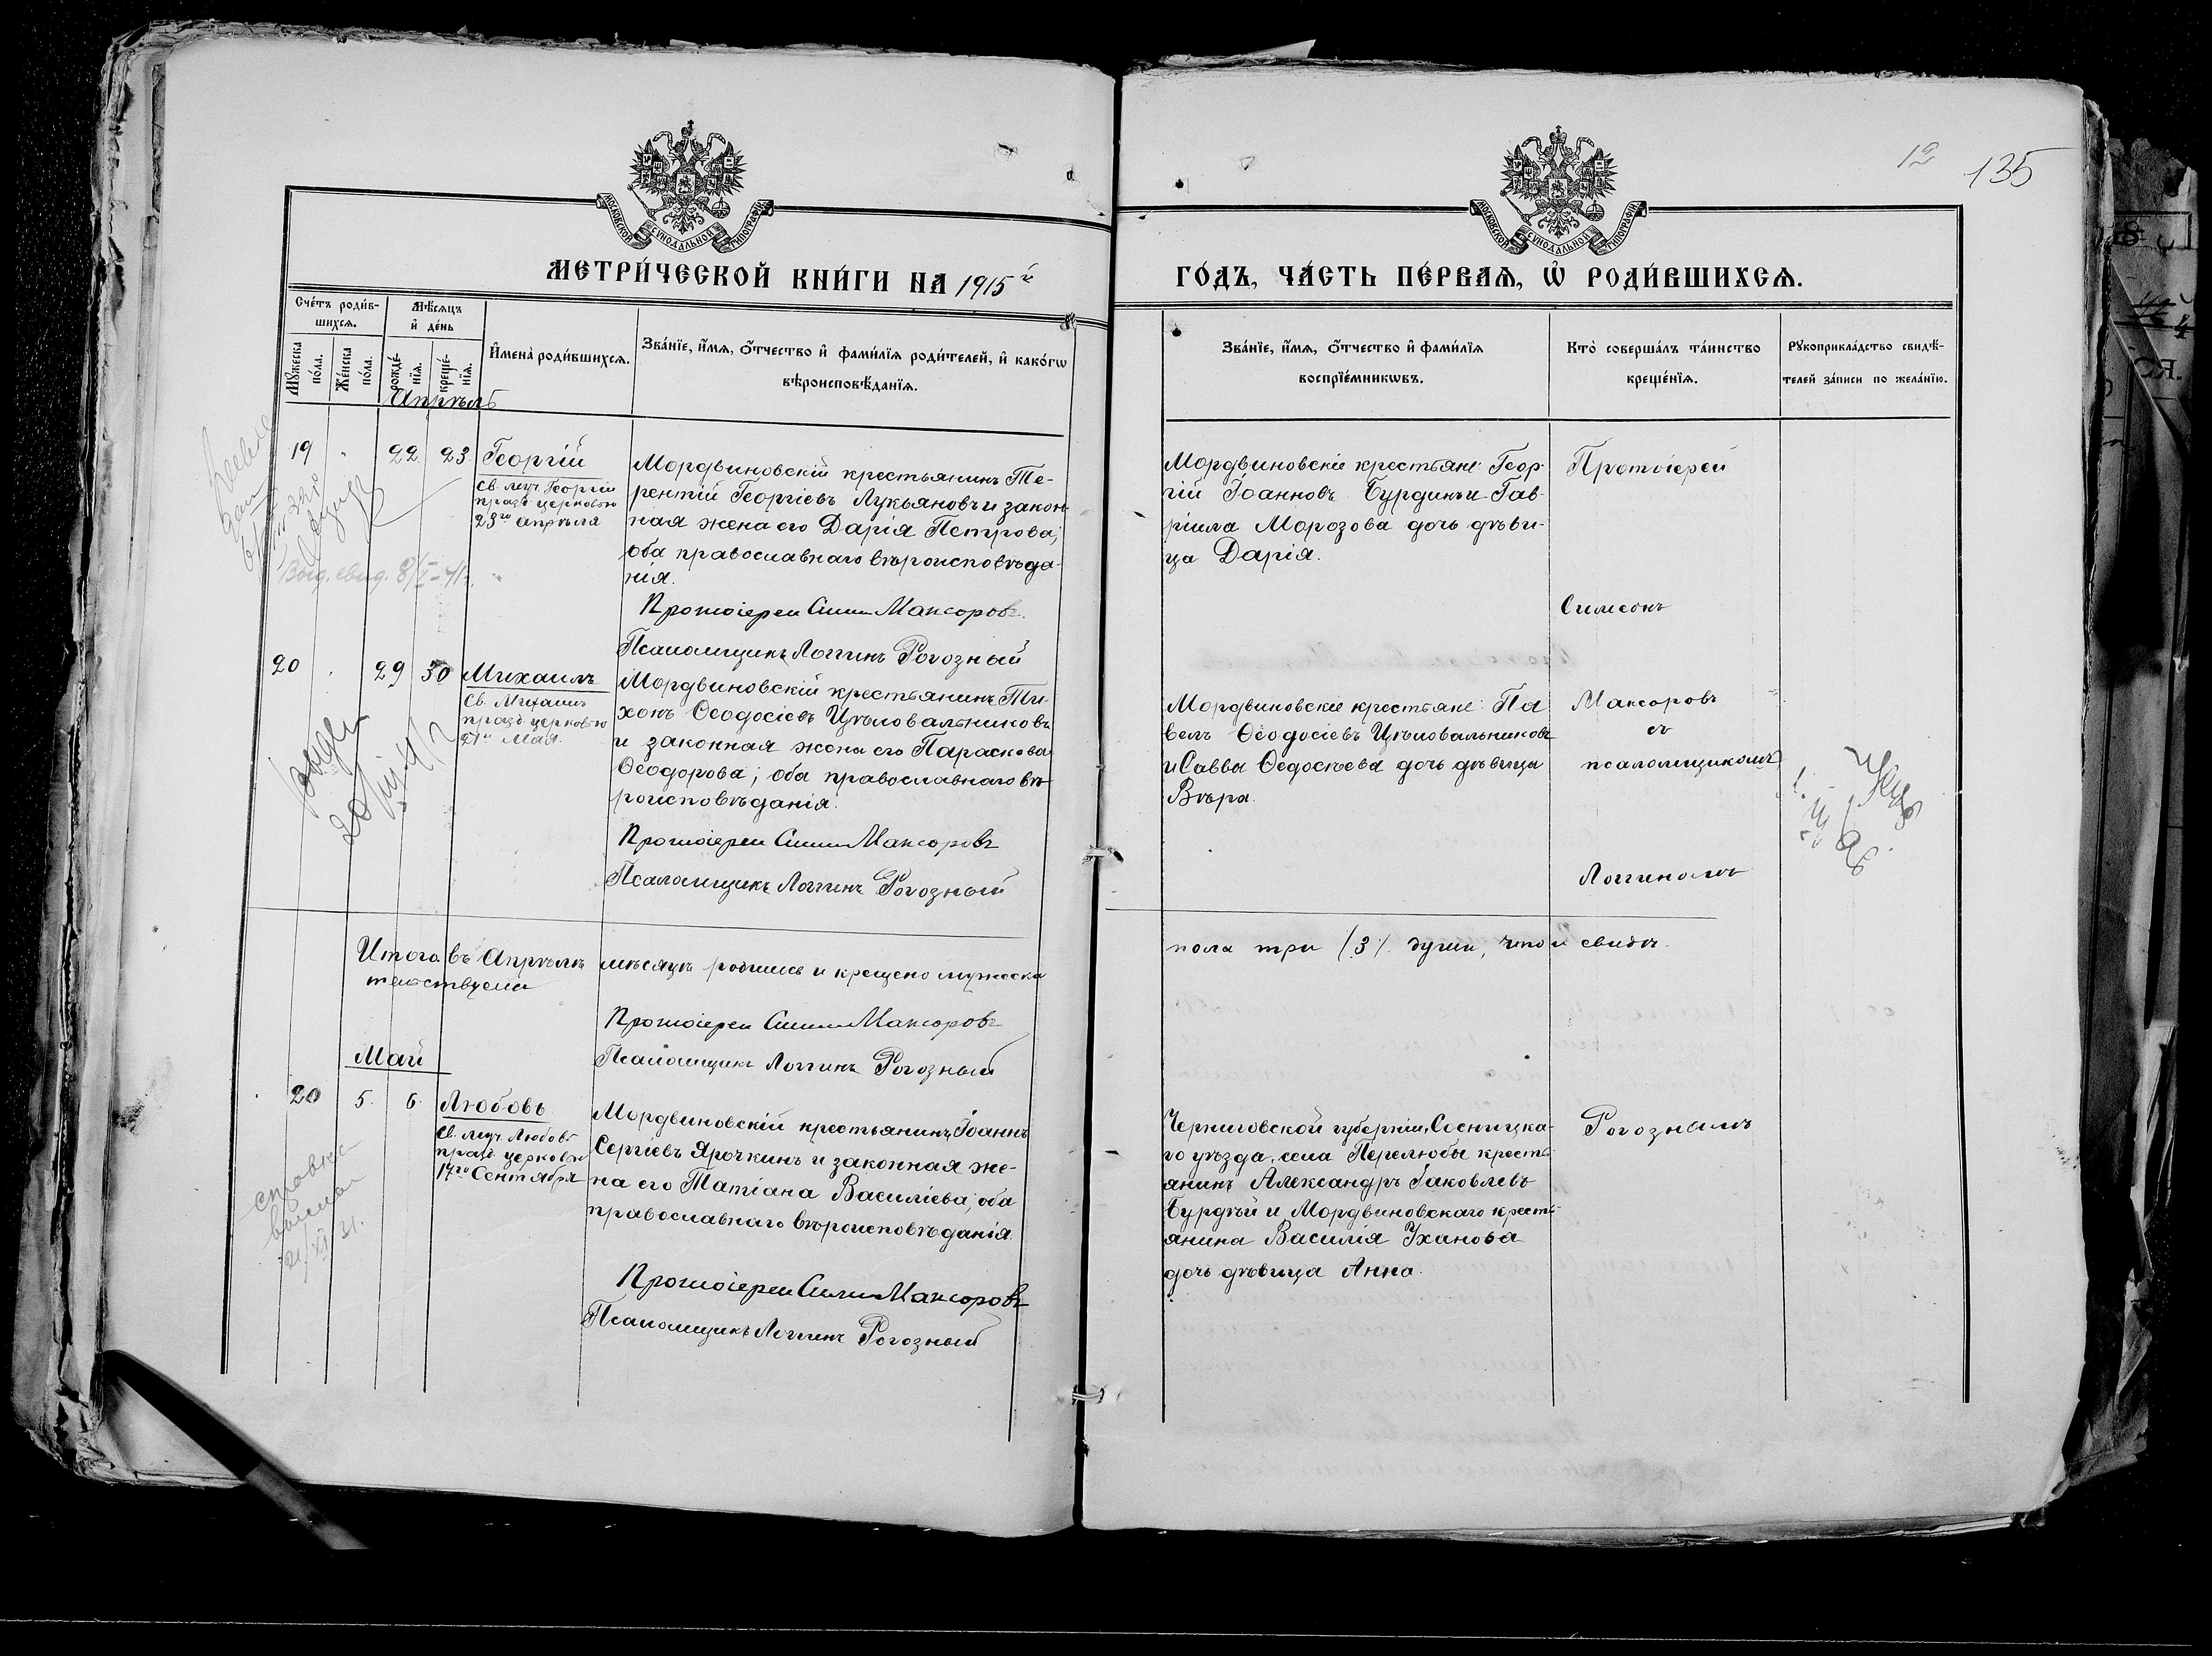 12 135
МОСКОВСКОЙ СУНОДАЛЬНОЙ ТИПОГРАФІИ
МОСКОВСКОЙ СУНОДАЛЬНОЙ ТИПОГРАФІИ
МЕТРИ́ЧЕСКОЙ КНИ́ГИ НА 1915й
ГО́ДЪ, ЧА́СТЬ ПЕ́РВАѦ, Ѡ҆ РОДИ́ВШИХСѦ.
Сче́тъ роди́в-
шихсѧ.
Мѣ́сѧцъ
и҆ де́нь
Мꙋ́жеска
по́ла.
Же́нска
по́ла.
рожде́-
нїѧ.
креще́-
нїѧ.
И҆мена̀ роди́вшихсѧ.
Зва́нїе, и҆́мѧ, ѻ҆́тчество и҆ фами́лїѧ роди́телей, и҆ како́гѡ
вѣроисповѣ́данїѧ.
Зва́нїе, и҆́мѧ, ѻ҆́тчество и҆ фами́лїѧ
воспрїе́мникѡвъ.
Кто̀ соверша́лъ та́инство
креще́нїѧ.
Рꙋкоприкла́дство свидѣ́-
телей за́писи по жела́нїю.
Апрѣль
19 22 23 Георгій
Св. муч. Георгій
празд. церковью
23го апрѣля
Мордвиновскій крестьянинъ Те-
рентій Георгіевъ Лукьяновъ и закон-
ная жена его Дарія Петрова;
оба православнаго вѣроисповѣда-
нія.
Протоіерей Симеонъ Максоровъ.
Псаломщикъ Логгинъ Рогозный
Мордвиновскіе крестьяне: Геор-
гій Іоанновъ Бурдинъ и Гав-
ріила Морозова дочь дѣви-
ца Дарія.
Протоіерей
Симеонъ
Выд. свид. 8/I-41г.
20 29 30 Михаилъ
Св. Михаилъ
празд. церковью
21го Мая.
Мордвиновскій крестьянинъ Ти-
хонъ Ѳеодосіевъ Цѣловальниковъ
и законная жена его Параскева
Ѳеодорова; оба православнаго вѣ-
роисповѣданія.
Протоіерей Симеонъ Максоровъ
Псаломщикъ Логгинъ Рогозный
Мордвиновскіе крестьяне: Па
велъ Ѳеодосіевъ Цѣловальниковъ
и Саввы Ѳедосѣева дочь дѣвица
Вѣра.
Максоровъ
съ
псаломщикомъ
Логгиномъ
Итого въ Апрѣлѣ мѣсяцѣ родилось и крещено мужеска
пола три /3/. души, что и свидѣ-
тельствуемъ
Протоіерей Симеонъ Максоровъ
Псаломщикъ Логгинъ Рогозный
Май
20 5. 6. Любовь
Св. муч. Любовь
празд. церковью
17го Сентября
Мордвиновскій крестьянинъ Іоаннъ
Сергіевъ Ярочкинъ и законная же-
на его Татіана Василіева; оба
православнаго вѣроисповѣданія.
Протоіерей Симеонъ Максоровъ
Псаломщикъ Логгинъ Рогозный
Черниговской губерніи, Сосницка-
го уѣзда, села Перелюбы кресть-
янинъ Александръ Іаковлевъ
Бурдѣй и Мордвиновскаго кресть-
янина Василія Уханова
дочь дѣвица Анна.
Рогознымъ
справка